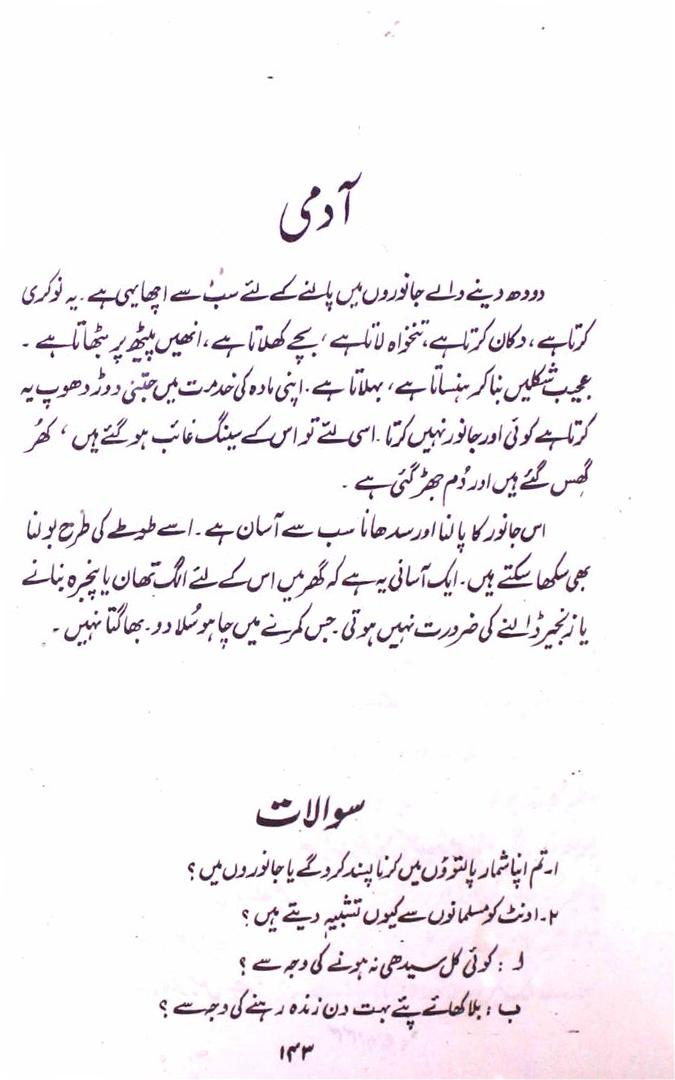 آدمی
دودھ دینے والے جانوروں میں پالنے کے لئے سب سے اچھا یہی ہے۔ یہ نوکری
کرتا ہے، دکان کرتا ہے، تنخواہ لاتا ہے، بچے کھلاتا ہے، انھیں پیٹھ پر بٹھاتا ہے۔
عجیب شکلیں بنا کر ہنساتا ہے، بہلاتا ہے۔ اپنی مادہ کی خدمت میں جتنی دوڑ دھوپ یہ
کرتا ہے کوئی اور جانور نہیں کرتا۔ اسی لئے تو اس کے سینگ غائب ہو گئے ہیں، کھُر
گھِس گئے ہیں اور دُم جھڑ گئی ہے۔
اس جانور کا پالنا اور سدھانا سب سے آسان ہے۔ اسے طوطے کی طرح بولنا
بھی سکھا سکتے ہیں۔ ایک آسانی یہ ہے کہ گھر میں اس کے لئے الگ تھان یا پنجرہ بنانے
یا زنجیر ڈالنے کی ضرورت نہیں ہوتی۔ جس کمرے میں چاہو سُلا دو۔ بھاگتا نہیں۔
سوالات
۱۔ تم اپنا شمار پالتوؤں میں کرنا پسند کرو گے یا جانوروں میں؟
۲۔ اونٹ کو مسلمانوں سے کیوں تشبیہ دیتے ہیں؟
ا: کوئی کل سیدھی نہ ہونے کی وجہ سے؟
ب: بلا کھائے پئے بہت دن زندہ رہنے کی وجہ سے؟
۱۴۳